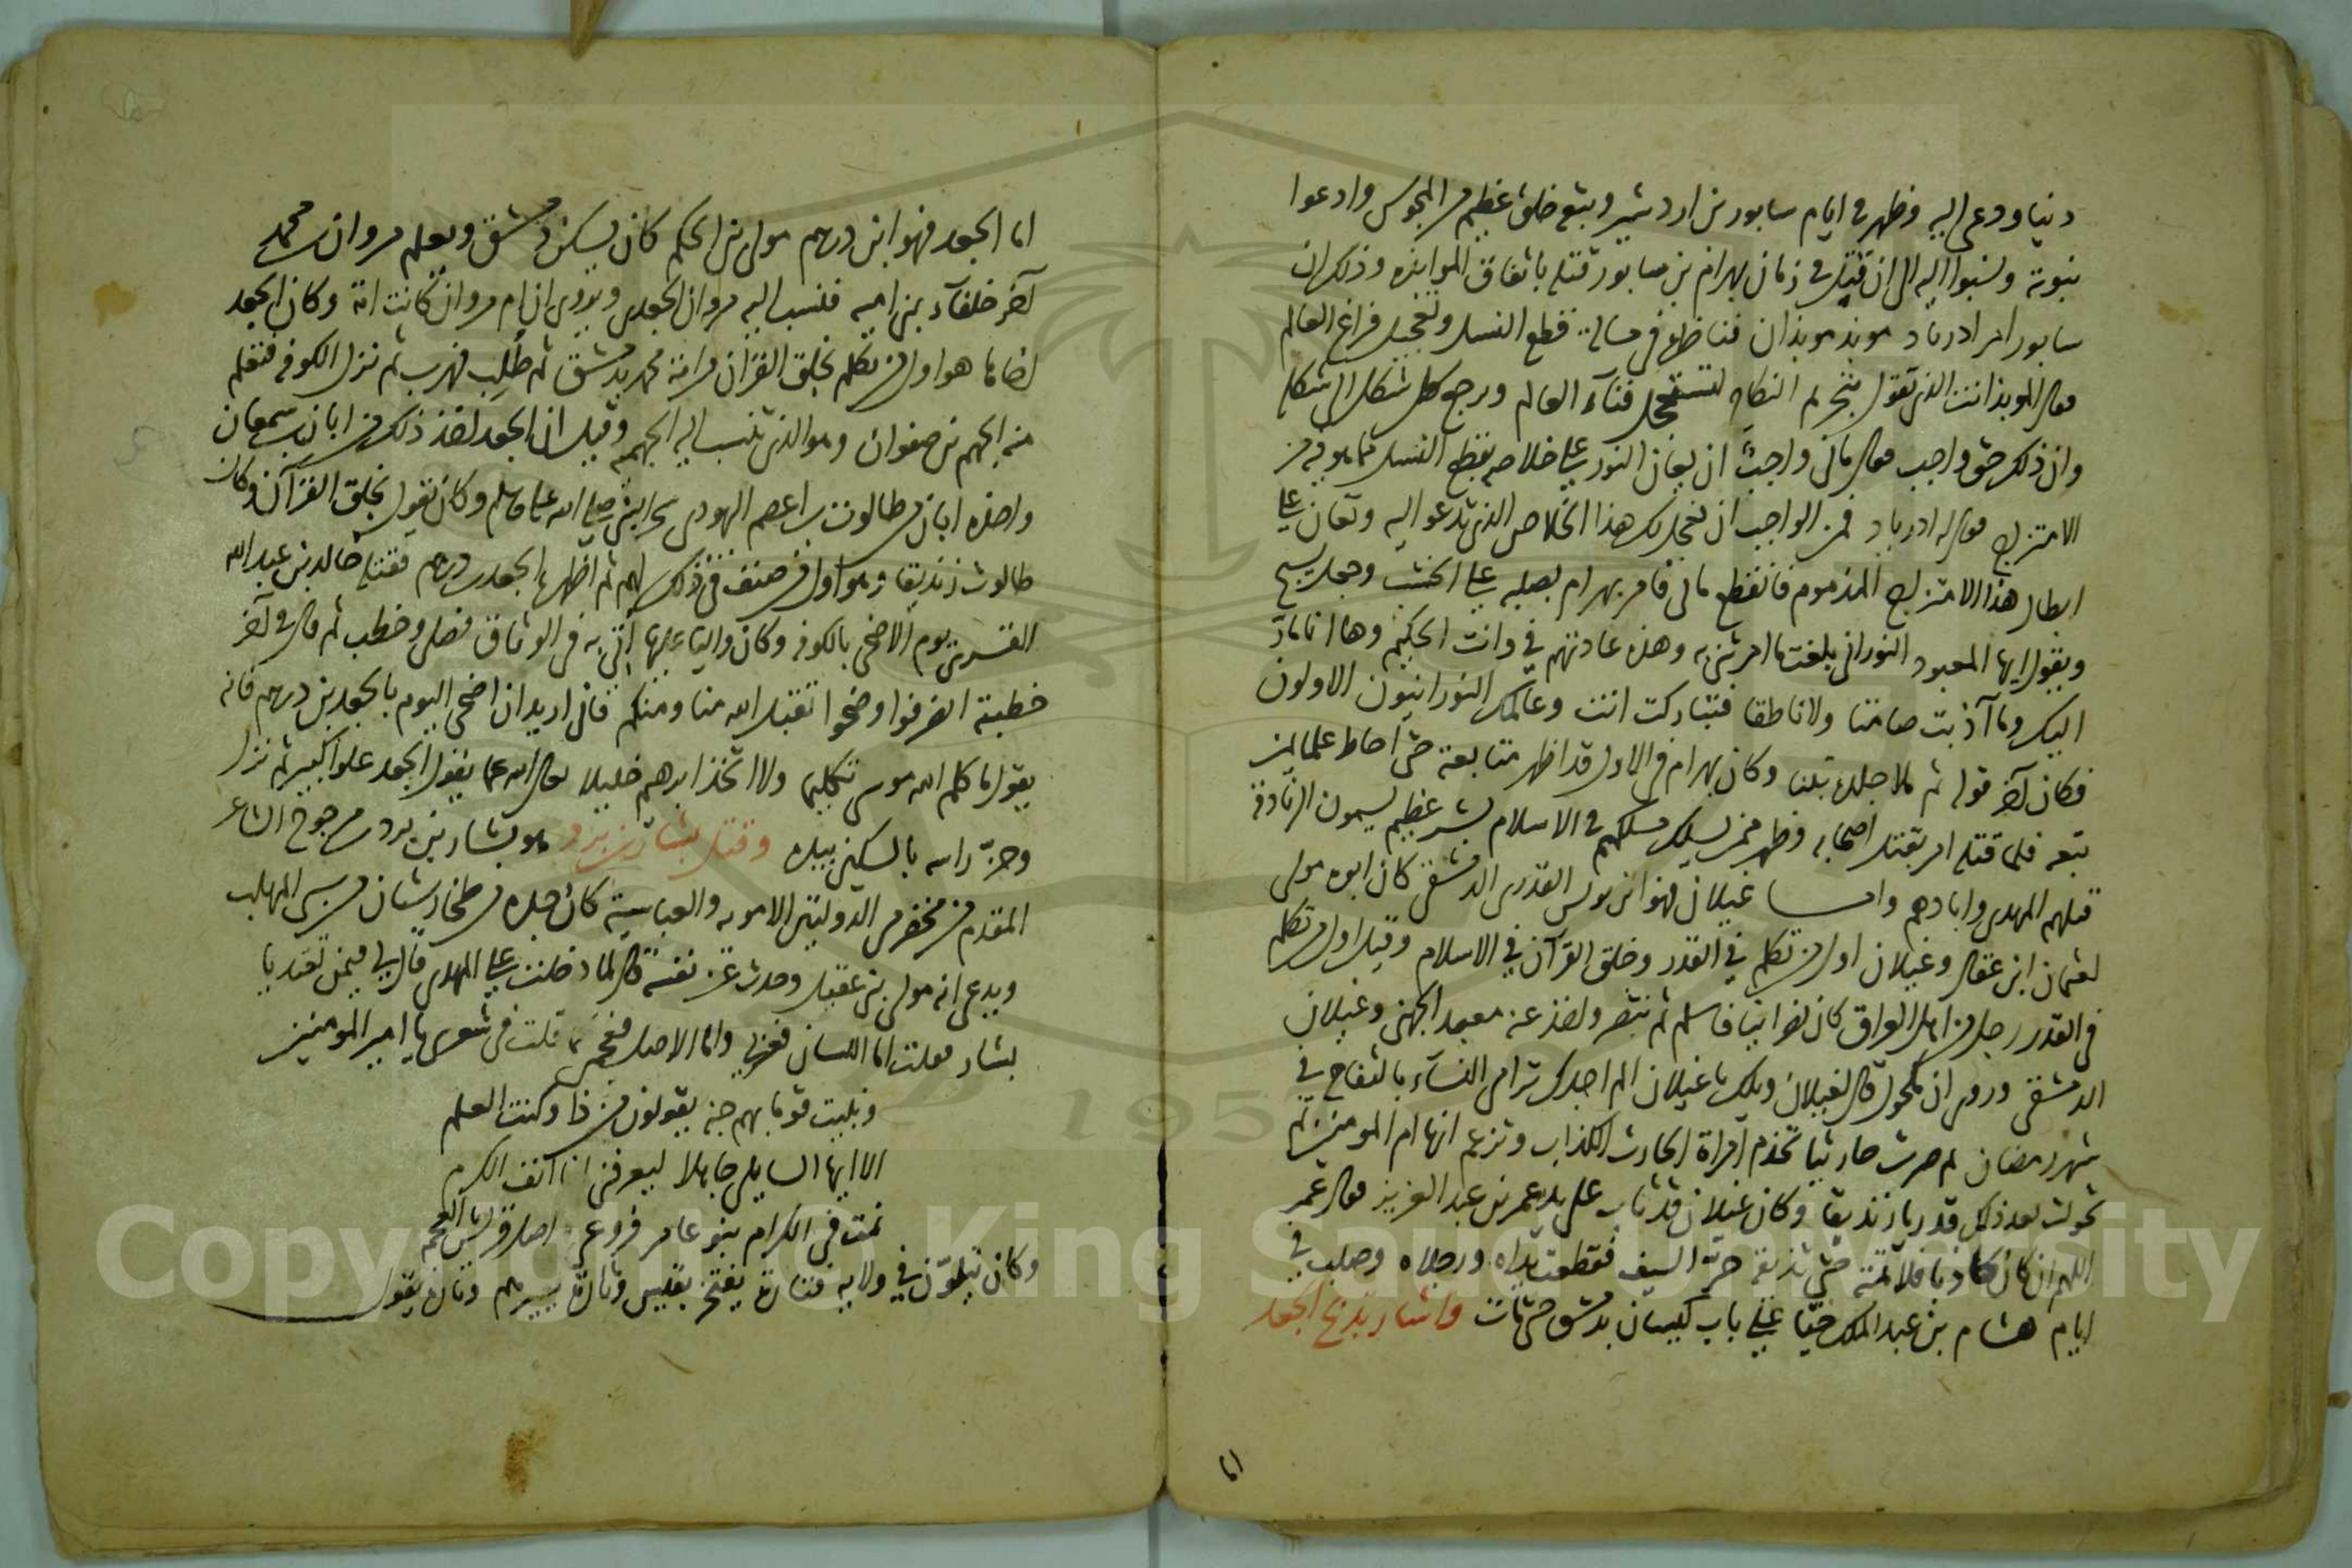 دينا ودعى اليه وظهر في ايام سابور بن اردشير وتبع خلق عظيم من المجوس وادعوا
نبوته ونسبوا اليه الى ان قتل في زمان بهرام بن سابور قتله باتفاق الموابذه وذلك ان
سابور امر ادرباد موبذ موبذان فناظره في مسالة قطع النسل وتعجيل فراغ العالم
فقال الموبذ انت الذي تقول بتحريم النكاح لتستعجل فناء العالم ورجع كل شكل الى شكله
وان ذلك حق واجب فقال ماني واجب ان يعان النور على خلاصه بقطع النسل مما هو فيه من
الامتزاج فقال له ادرباد فمن الواجب ان نعجل لك هذا الخلاص الذي تدعو اليه وتعان على
ابطال هذا الامتزاج المذموم فانقطع ماني فامر بهرام بصلبه على الخشب وجعل يسبح
ويقول ايها المعبود النوراني بلغت ما امرتني به وهذه عادتهم في وانت الحكيم وها انا مار
اليك وما آذيت صامتا ولا ناطقا فتباركت انت وعالمك النورانيون الاولون
فكان آخر قوله ثم بلنا وكان بهرام في الاول قد اظهر متابعة حتى احاط علما بمن
تبعه فلما قتله امر بقتل اصحابه وظهر ممن يسلك مسلكهم في الاسلام بشر عظيم يسمون الزنادقة
قتلهم المهدي وابادهم واما غيلان فهو ابن يونس القدري الدمشقي كان ابوه مولى
لعثمان ابن عفان وغيلان اول من تكلم في القدر وخلق القرآن في الاسلام وقيل اول من تكلم
في القدر رجل من اهل العراق كان نصرانيا فاسلم ثم تنصر واخذ عنه معبد الجهني وغيلان
الدمشقي وروى ان مكحول قال لغيلان ويلك يا غيلان الم اجدك ترامي النساء بالتفاح في
شهر رمضان ثم صرت حارثيا تخدم امراة الحارث الكذاب وتزعم انها ام المومنين ثم
تحولت بعد ذلك قدريا زنديقا وكان غيلان قد تاب على يد عمر بن عبد العزيز فقال عمر
اللهم ان كان كاذبا فلا تمته حتى تذيقه حر السيف فقطعت يداه ورجلاه وصلب في
ايام هشام بن عبد الملك حيا على باب كيسان بدمشق حتى مات واشار بذبح الجعد
اما
اما الجعد فهو ابن درهم مولى بن الحكم كان يسكن دمشق ويعلم مروان بن محمد
آخر خلفآء بني اميه فنسب اليه مروان الجعدي ويروى ان ام مروان كانت امة وكان الجعد
اخاها هو اول من تكلم بخلق القران من امة محمد بدمشق ثم طلب فهرب ثم نزل الكوفه فتعلم
منه الجهم بن صفوان وهو الذي تنسب اليه الجهمية وقيل ان الجعد اخذ ذلك من ابان بن سمعان
واخذه ابان من طالوت بن اعصم اليهودي سحر النبي صلى الله عليه وسلم وكان يقول بخلق القرآن وكان
طالوت زنديقا وهو اول من صنف في ذلك لهم ثم اظهره الجعد بن درهم فقتله خالد بن عبد الله
القسري يوم الاضحى بالكوفه وكان واليا عليها اتى به في الوثاق فصلى وخطب ثم قال في آخر
خطبته انصرفوا وضحوا تقبل الله منا ومنكم فاني اريد ان اضحى اليوم بالجعد بن درهم فانه
يقول ما كلم الله موسى تكليما ولا اتخذ ابرهم خليلا تعالى الله عما يقول الجعد علوا كبيرا ثم نزل
وحز راسه بالسكين بيده وقتل بشار بن برد هو بشار بن برد بن يرجوخ الشاعر
المقدم من مخضرمي الدولتين الامويه والعباسية كان جده من طخارستان من سبي المهلب
ويدعى انه مولى بني عقيل وحدث عن نفسه قال لما دخلت على المهدي قال لي فيمن تعتد يا
بشار فقلت اما اللسان فعربي واما الاصل فعجمي كما قلت في شعري يا امير المومنين
ونبئت قوما بهم جنه يقولون من ذا وكنت العلم
الا ايها السايلي جاهلا ليعرفني انا آنف الكرم
نمت في الكرام بنو عامر فروعي واصلي قريش العجم
وكان يتلون في ولايه فتارة يفتخر بقيس وتارة وتارة يقول
Copyright © King Saud University
195